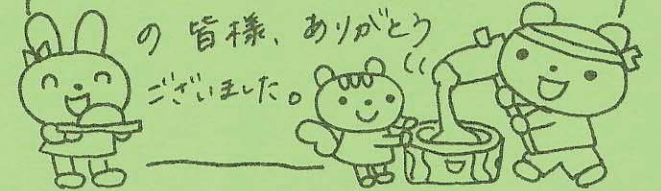 の皆様、ありがとう
ございました。